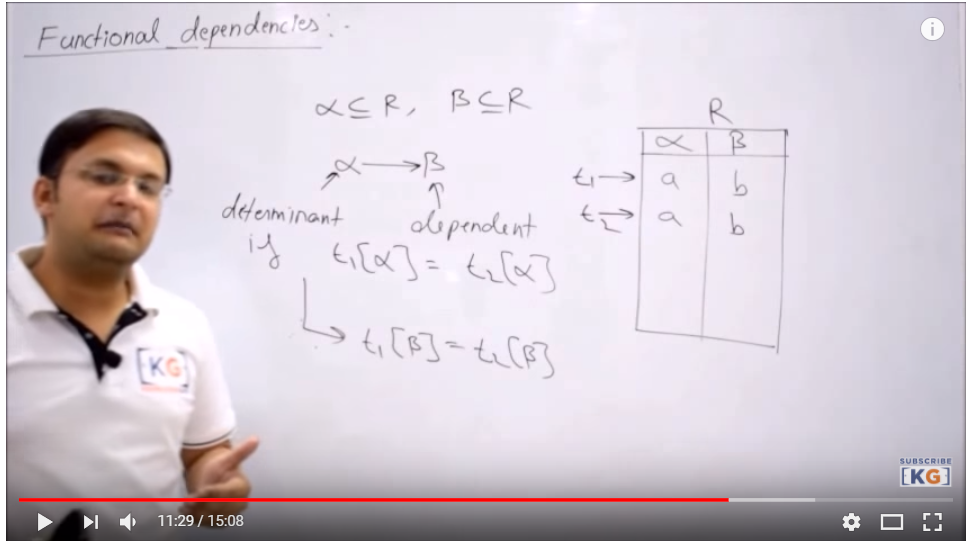 Functional dependencies:-
α ⊆ R, β ⊆ R
α → β
determinant
dependent
if t₁[α] = t₂[α]
↳ t₁[β] = t₂[β]
R
α β
t₁ → a b
t₂ → a b
[KG]
SUBSCRIBE
[KG]
11:29 / 15:08
i